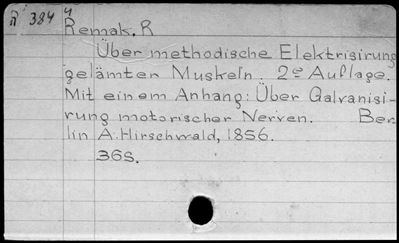 n 384 4
Remak. R
Über methodische Elektrisirung
gelämter Muskeln. 2e Auflage.
Mit einem Anhang: Über Galvanisi-
rung motorischer Nerven. Ber
lin A. Hirschwald, 1856.
36s.